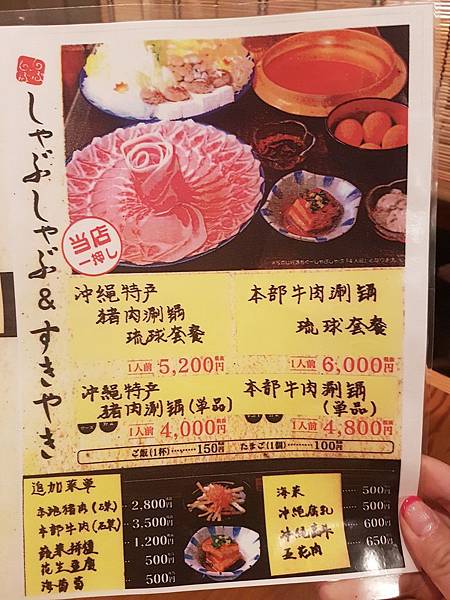 しゃぶしゃぶ&すきやき
当店
一押し
沖縄特产
猪肉涮锅
琉球套餐
1人前 5,200円
本部牛肉涮锅
琉球套餐
1人前 6,000円
沖縄特产
猪肉涮锅(单品)
1人前 4,000円
本部牛肉涮锅
(单品)
1人前 4,800円
ご飯(1杯)………150円 たまご(1個)………100円
追加菜单
2,800円
本部牛肉 3,500円
蔬菜拼盤 1,200円
花生豆腐 500円
海葡萄 500円
500円
沖縄腐乳 500円
600円
五花肉 650円